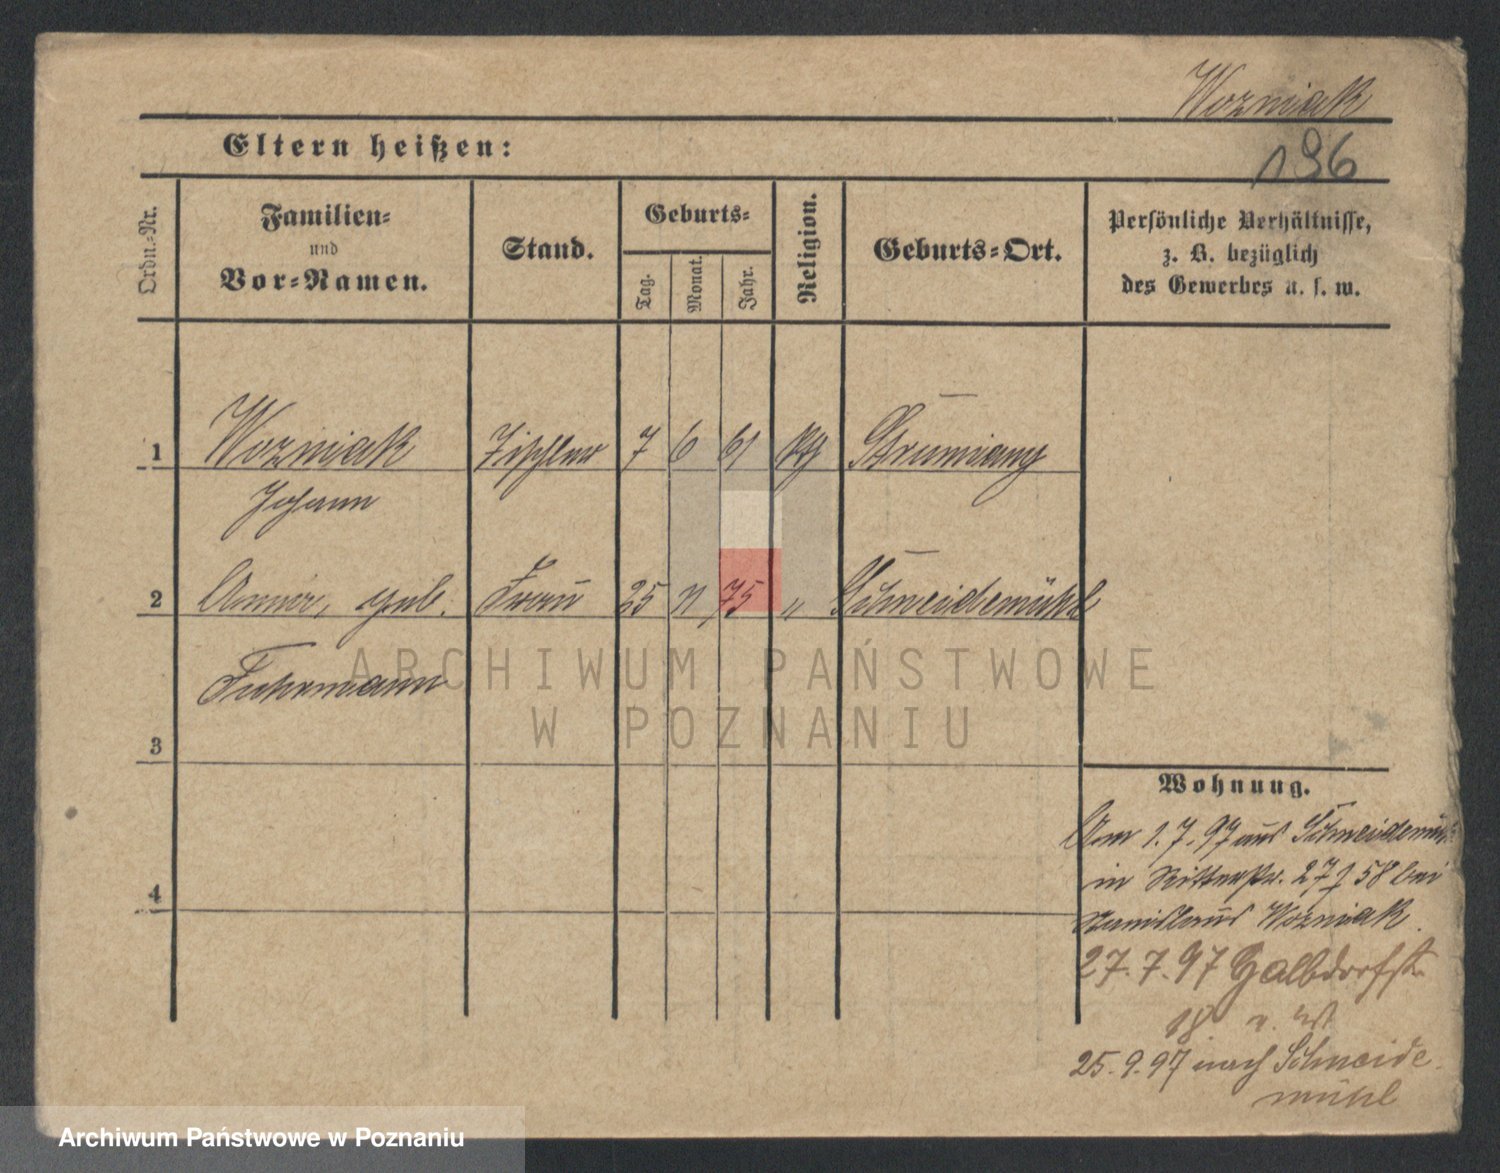 Wozniak
Eltern heißen:
196
Ordn.-Nr.
Familien-
und
Vor-Namen.
Stand.
Geburts-
Tag.
Monat.
Jahr.
Religion.
Geburts-Ort.
Persönliche Verhältnisse,
z. B. bezüglich
des Gewerbes u. s. w.
1 Wozniak Tischler 7 6 61 kth Strumiany
Johann
2 Anna, geb. Frau 25 11 75 " Schneidemühl
Fuhrmann
3
4
Wohnung.
Am 1.7.97 aus Schneidemühl
in Ritterstr. 27 58 bei
Stanislaus Wozniak.
27.7.97 Halbdorfstr.
18
25.9.97 nach Schneide
mühl
ARCHIWUM PAŃSTWOWE
W POZNANIU
Archiwum Państwowe w Poznaniu